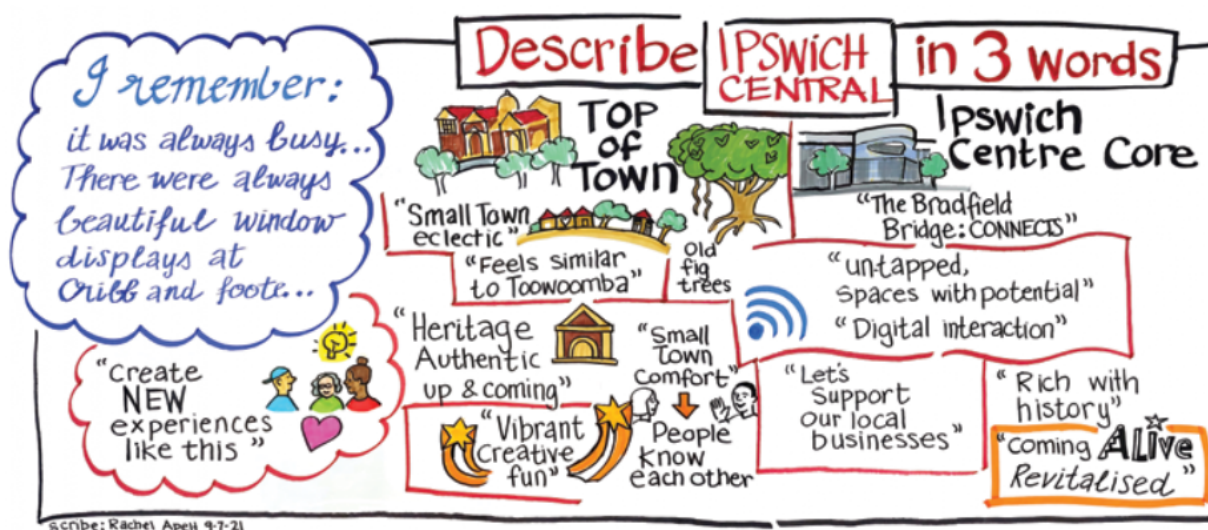 Describe IPSWICH CENTRAL in 3 words
I remember:
it was always busy...
There were always
beautiful window
displays at
Cribb and foote...
"Create
NEW
experiences
like this"
TOP
OF
TOWN
"Small Town
eclectic"
"Feels similar
to Toowoomba"
Old
fig
trees
"Heritage
Authentic
up & coming"
"Small
Town
Comfort"
People
know
each other
"Vibrant
Creative
fun"
Ipswich
Centre Core
"The Bradfield
Bridge: CONNECTS"
"un-tapped,
spaces with potential"
"Digital interaction"
"Let's
Support
our local
businesses"
"Rich with
history"
"Coming ALIVE
Revitalised"
Scribe: Rachel Apelt 9-7-21